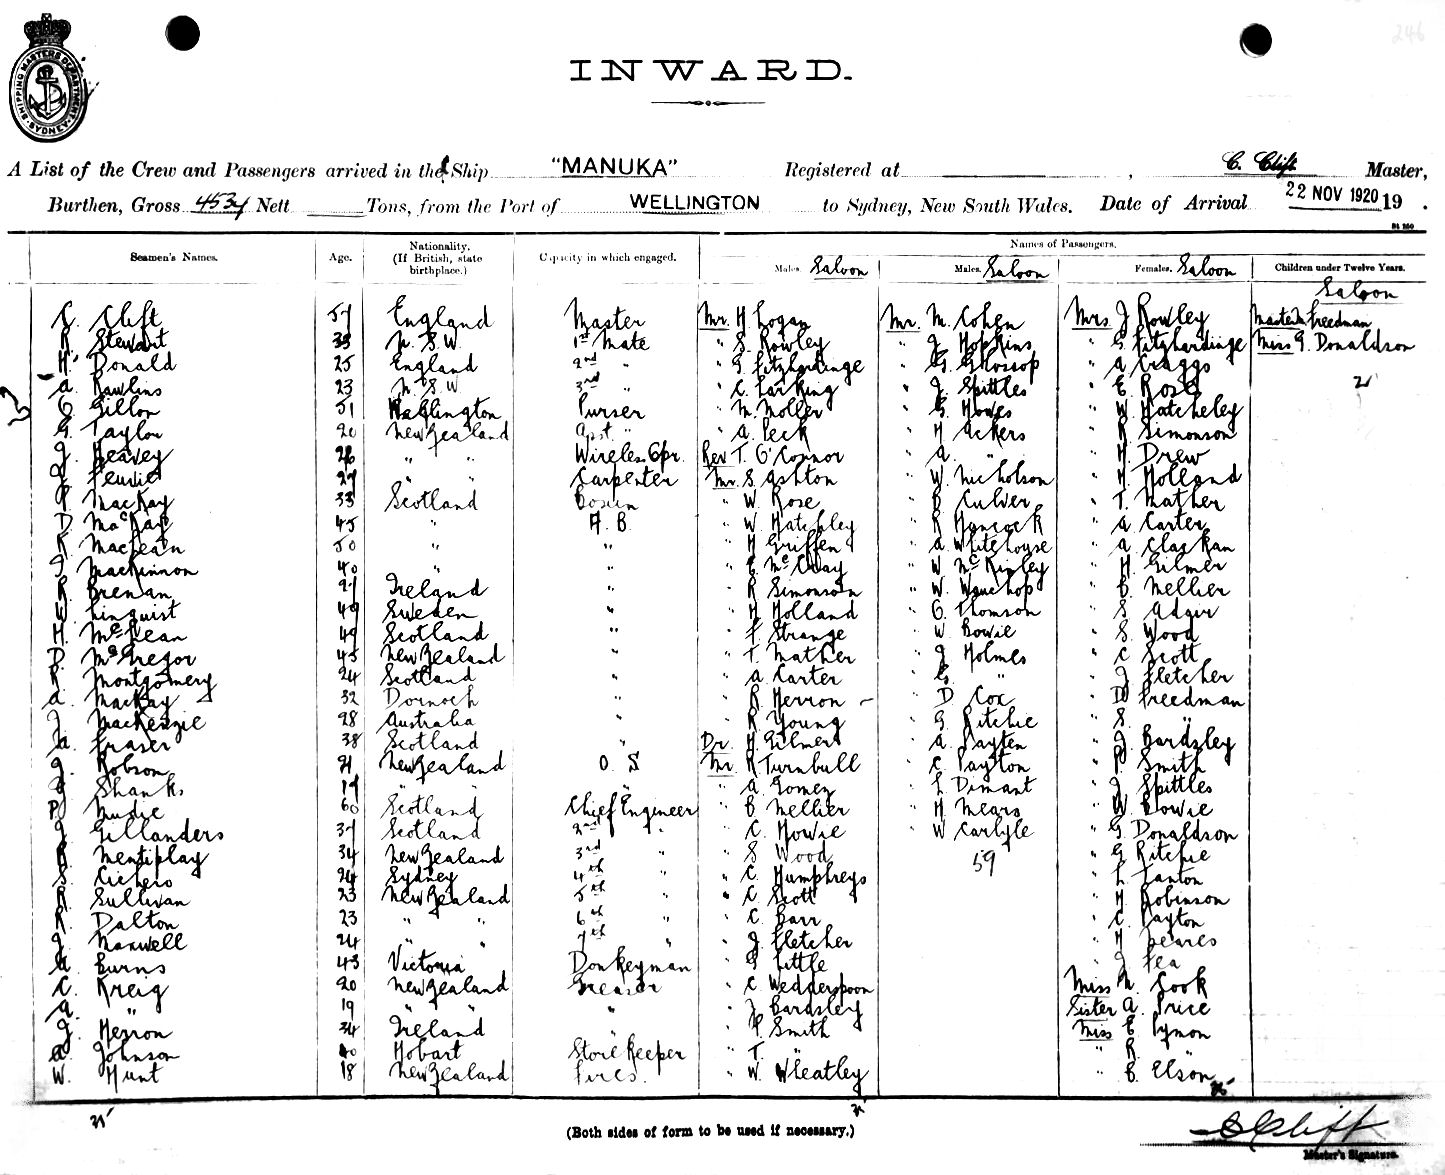 246
SHIPPING MASTERS DEPARTMENT SYDNEY
INWARD.
A List of the Crew and Passengers arrived in the Ship "MANUKA" Registered at , C. Clift Master,
Burthen, Gross 4534 Nett Tons, from the Port of WELLINGTON to Sydney, New South Wales. Date of Arrival 22 NOV 1920 19 .
Seamen's Names. Age. Nationality. (If British, state birthplace.) Capacity in which engaged. Names of Passengers.
Males. Saloon Males. Saloon Females. Saloon Children under Twelve Years.
Saloon
C. Clift 57 England Master Mr. H Logan Mr. M. Cohen Mrs J Rowley Master Freedman
R. Stewart 35 N.S.W 1st Mate " S. Rowley " J Hopkins " G Fitzhardinge Miss G. Donaldson
H. Donald 25 England 2nd " " G. Fitzhardinge " G. Glossop " A Craggs 2
A. Rawlins 23 N.S.W 3rd " " C. Larking " J Spittles " E Rose
C. Gillon 51 Wallington Purser " M. Moller " G. Howes " W Hatcheley
G. Taylor 20 New Zealand Asst. " " A. Peck " H Ackers " R Simonson
J. Heavey 26 " " Wireless Opr. Rev T. O'Connor " A. " " H Drew
J. 27 " " Carpenter Mr. S. Ashton " W. Nicholson " H. Holland
P. MacKay 33 Scotland Bosun " W Rose " B Culver " T. Mather
D. MacKay 45 " A. B. " W. Hatchley " R Hancock " A Carter
R. MacLean 50 " " " H Griffen " A Whitehouse " A Clackan
J. MacKinnon 40 " " " E McCoay " W McKinley " H Gilmer
R. Brennan 27 Ireland " " R Simonson " W. Wauchop " B. Mellier
W. Linquist 49 Sweden " " H Holland " C. Thomson " S. Adair
H. McLean 49 Scotland " " F Strange " W Bowie " S. Wood
D. McGregor 45 New Zealand " " T. Mather " J Holmes " C Scott
R. Montgomery 24 Scotland " " A. Carter " " " J Fletcher
A. MacKay 32 Dornoch " " R. Herron " D Cox " D Freedman
J. MacKenzie 28 Australia " " R Young " G. Ritchie " S. "
A. Fraser 38 Scotland " Dr. H. Gilmer " A. Payten " J. Bardsley
J. Robson 21 New Zealand O. S Mr. R Turnbull " C Payton " P. Smith
Shanks 19 " " " " A Gomez " L Dimant " J Spittles
P. Mudie 60 Scotland Chief Engineer " B Mellier " H Mears " W. Bowie
J. Gillanders 37 Scotland 2nd " " C. Howie " W Carlyle " G Donaldson
R. Mentiplay 34 New Zealand 3rd " " S Wood 59 " G Ritchie
S. Cichero 24 Sydney 4th " " C. Humphreys " L Lanton
R. Sullivan 23 New Zealand 5th " " C Scott " H Robinson
R. Dalton 23 " " 6th " " C Barr " C. Payton
J. Maxwell 24 " " 7th " " J Fletcher " H Peares
A. Burns 43 Victoria Donkeyman " G Little " J Fea
C. Kreig 20 New Zealand Greaser " C Wedderspoon Miss M. Cook
A. " 19 " " " " J Bardsley Sister A. Price
J. Herron 34 Ireland " " P. Smith Miss E Pymon
A. Johnson 40 Hobart Store Keeper " T. " " R. "
W. Hunt 18 New Zealand Fires. " W. Wheatley " B. Elson
35
(Both sides of form to be used if necessary.)
C Clift
Master's Signature.